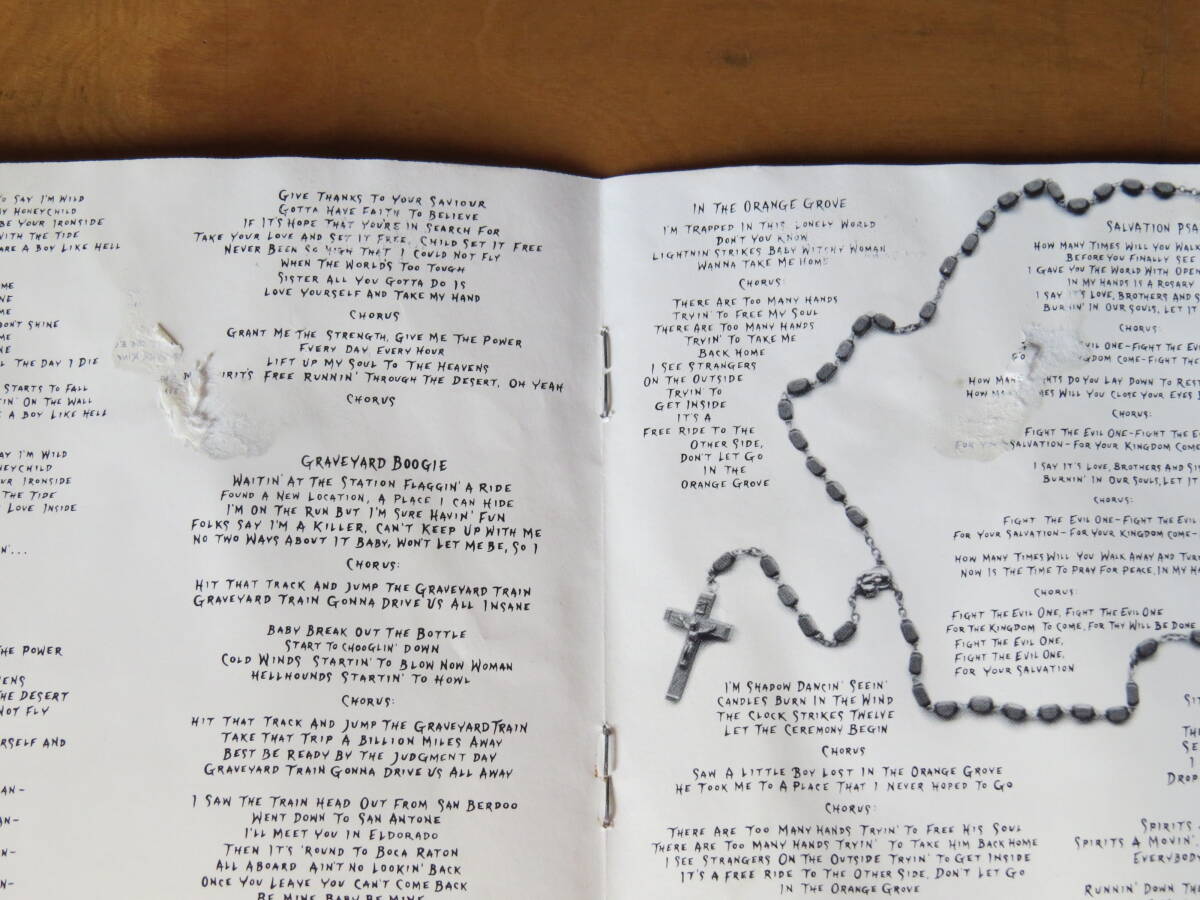 TO SAY I'M WILD
MY HONEYCHILD
BE YOUR IRONSIDE
WITH THE TIDE
ARE A BOY LIKE HELL
ME
NE
ME
DON'T SHINE
ME
NE
L THE DAY I DIE
STARTS TO FALL
TIN' ON THE WALL
E A BOY LIKE HELL
SAY I'M WILD
NEYCHILD
UR IRONSIDE
THE TIDE
LOVE INSIDE
N'...
THE POWER
VENS
THE DESERT
NOT FLY
RSELF AND
AN-
AN-
N-
N-
GIVE THANKS TO YOUR SAVIOUR
GOTTA HAVE FAITH TO BELIEVE
IF IT'S HOPE THAT YOU'RE IN SEARCH FOR
TAKE YOUR LOVE AND SET IT FREE, CHILD SET IT FREE
NEVER BEEN SO HIGH THAT I COULD NOT FLY
WHEN THE WORLD'S TOO TOUGH
SISTER ALL YOU GOTTA DO IS
LOVE YOURSELF AND TAKE MY HAND
CHORUS
GRANT ME THE STRENGTH, GIVE ME THE POWER
EVERY DAY, EVERY HOUR
LIFT UP MY SOUL TO THE HEAVENS
PIRIT'S FREE RUNNIN' THROUGH THE DESERT, OH YEAH
CHORUS
GRAVEYARD BOOGIE
WAITIN' AT THE STATION FLAGGIN' A RIDE
FOUND A NEW LOCATION, A PLACE I CAN HIDE
I'M ON THE RUN BUT I'M SURE HAVIN' FUN
FOLKS SAY I'M A KILLER, CAN'T KEEP UP WITH ME
NO TWO WAYS ABOUT IT BABY, WON'T LET ME BE, SO I
CHORUS:
HIT THAT TRACK AND JUMP THE GRAVEYARD TRAIN
GRAVEYARD TRAIN GONNA DRIVE US ALL INSANE
BABY BREAK OUT THE BOTTLE
START TO CHOOGLIN' DOWN
COLD WINDS STARTIN' TO BLOW NOW WOMAN
HELLHOUNDS STARTIN' TO HOWL
CHORUS:
HIT THAT TRACK AND JUMP THE GRAVEYARD TRAIN
TAKE THAT TRIP A BILLION MILES AWAY
BEST BE READY BY THE JUDGMENT DAY
GRAVEYARD TRAIN GONNA DRIVE US ALL AWAY
I SAW THE TRAIN HEAD OUT FROM SAN BERDOO
WENT DOWN TO SAN ANTONE
I'LL MEET YOU IN ELDORADO
THEN IT'S 'ROUND TO BOCA RATON
ALL ABOARD AIN'T NO LOOKIN' BACK
ONCE YOU LEAVE YOU CAN'T COME BACK
BE MINE BABY BE MINE
IN THE ORANGE GROVE
I'M TRAPPED IN THIS LONELY WORLD
DON'T YOU KNOW
LIGHTNIN STRIKES BABY WITCHY WOMAN
WANNA TAKE ME HOME
CHORUS:
THERE ARE TOO MANY HANDS
TRYIN' TO FREE MY SOUL
THERE ARE TOO MANY HANDS
TRYIN' TO TAKE ME
BACK HOME
I SEE STRANGERS
ON THE OUTSIDE
TRYIN' TO
GET INSIDE
IT'S A
FREE RIDE TO THE
OTHER SIDE,
DON'T LET GO
IN THE
ORANGE GROVE
I'M SHADOW DANCIN' SEEIN'
CANDLES BURN IN THE WIND
THE CLOCK STRIKES TWELVE
LET THE CEREMONY BEGIN
CHORUS
SAW A LITTLE BOY LOST IN THE ORANGE GROVE
HE TOOK ME TO A PLACE THAT I NEVER HOPED TO GO
CHORUS:
THERE ARE TOO MANY HANDS TRYIN' TO FREE HIS SOUL
THERE ARE TOO MANY HANDS TRYIN' TO TAKE HIM BACK HOME
I SEE STRANGERS ON THE OUTSIDE TRYIN' TO GET INSIDE
IT'S A FREE RIDE TO THE OTHER SIDE, DON'T LET GO
IN THE ORANGE GROVE
SALVATION PSA
HOW MANY TIMES WILL YOU WALK
BEFORE YOU FINALLY SEE
I GAVE YOU THE WORLD WITH OPEN
IN MY HANDS IS A ROSARY
I SAY IT'S LOVE, BROTHERS AND S
BURNIN' IN OUR SOULS, LET IT
CHORUS:
EVIL ONE-FIGHT THE EVI
GDOM COME-FIGHT THE
HOW MAN NTS DO YOU LAY DOWN TO REST
HOW MES WILL YOU CLOSE YOUR EYES
CHORUS:
FIGHT THE EVIL ONE-FIGHT THE E
FOR YOUR SALVATION-FOR YOUR KINGDOM COME-
I SAY IT'S LOVE, BROTHERS AND SI
BURNIN' IN OUR SOULS, LET IT
CHORUS:
FIGHT THE EVIL ONE-FIGHT THE EVIL
FOR YOUR SALVATION-FOR YOUR KINGDOM COME-
HOW MANY TIMES WILL YOU WALK AWAY AND TURN
NOW IS THE TIME TO PRAY FOR PEACE, IN MY HA
CHORUS:
FIGHT THE EVIL ONE, FIGHT THE EVIL ONE
FOR THE KINGDOM TO COME, FOR THY WILL BE DONE
FIGHT THE EVIL ONE,
FIGHT THE EVIL ONE,
FOR YOUR SALVATION
SIT
TH
SE
I
DROP
SPIRITS
SPIRITS A MOVIN'
EVERYBOD
RUNNIN' DOWN THE